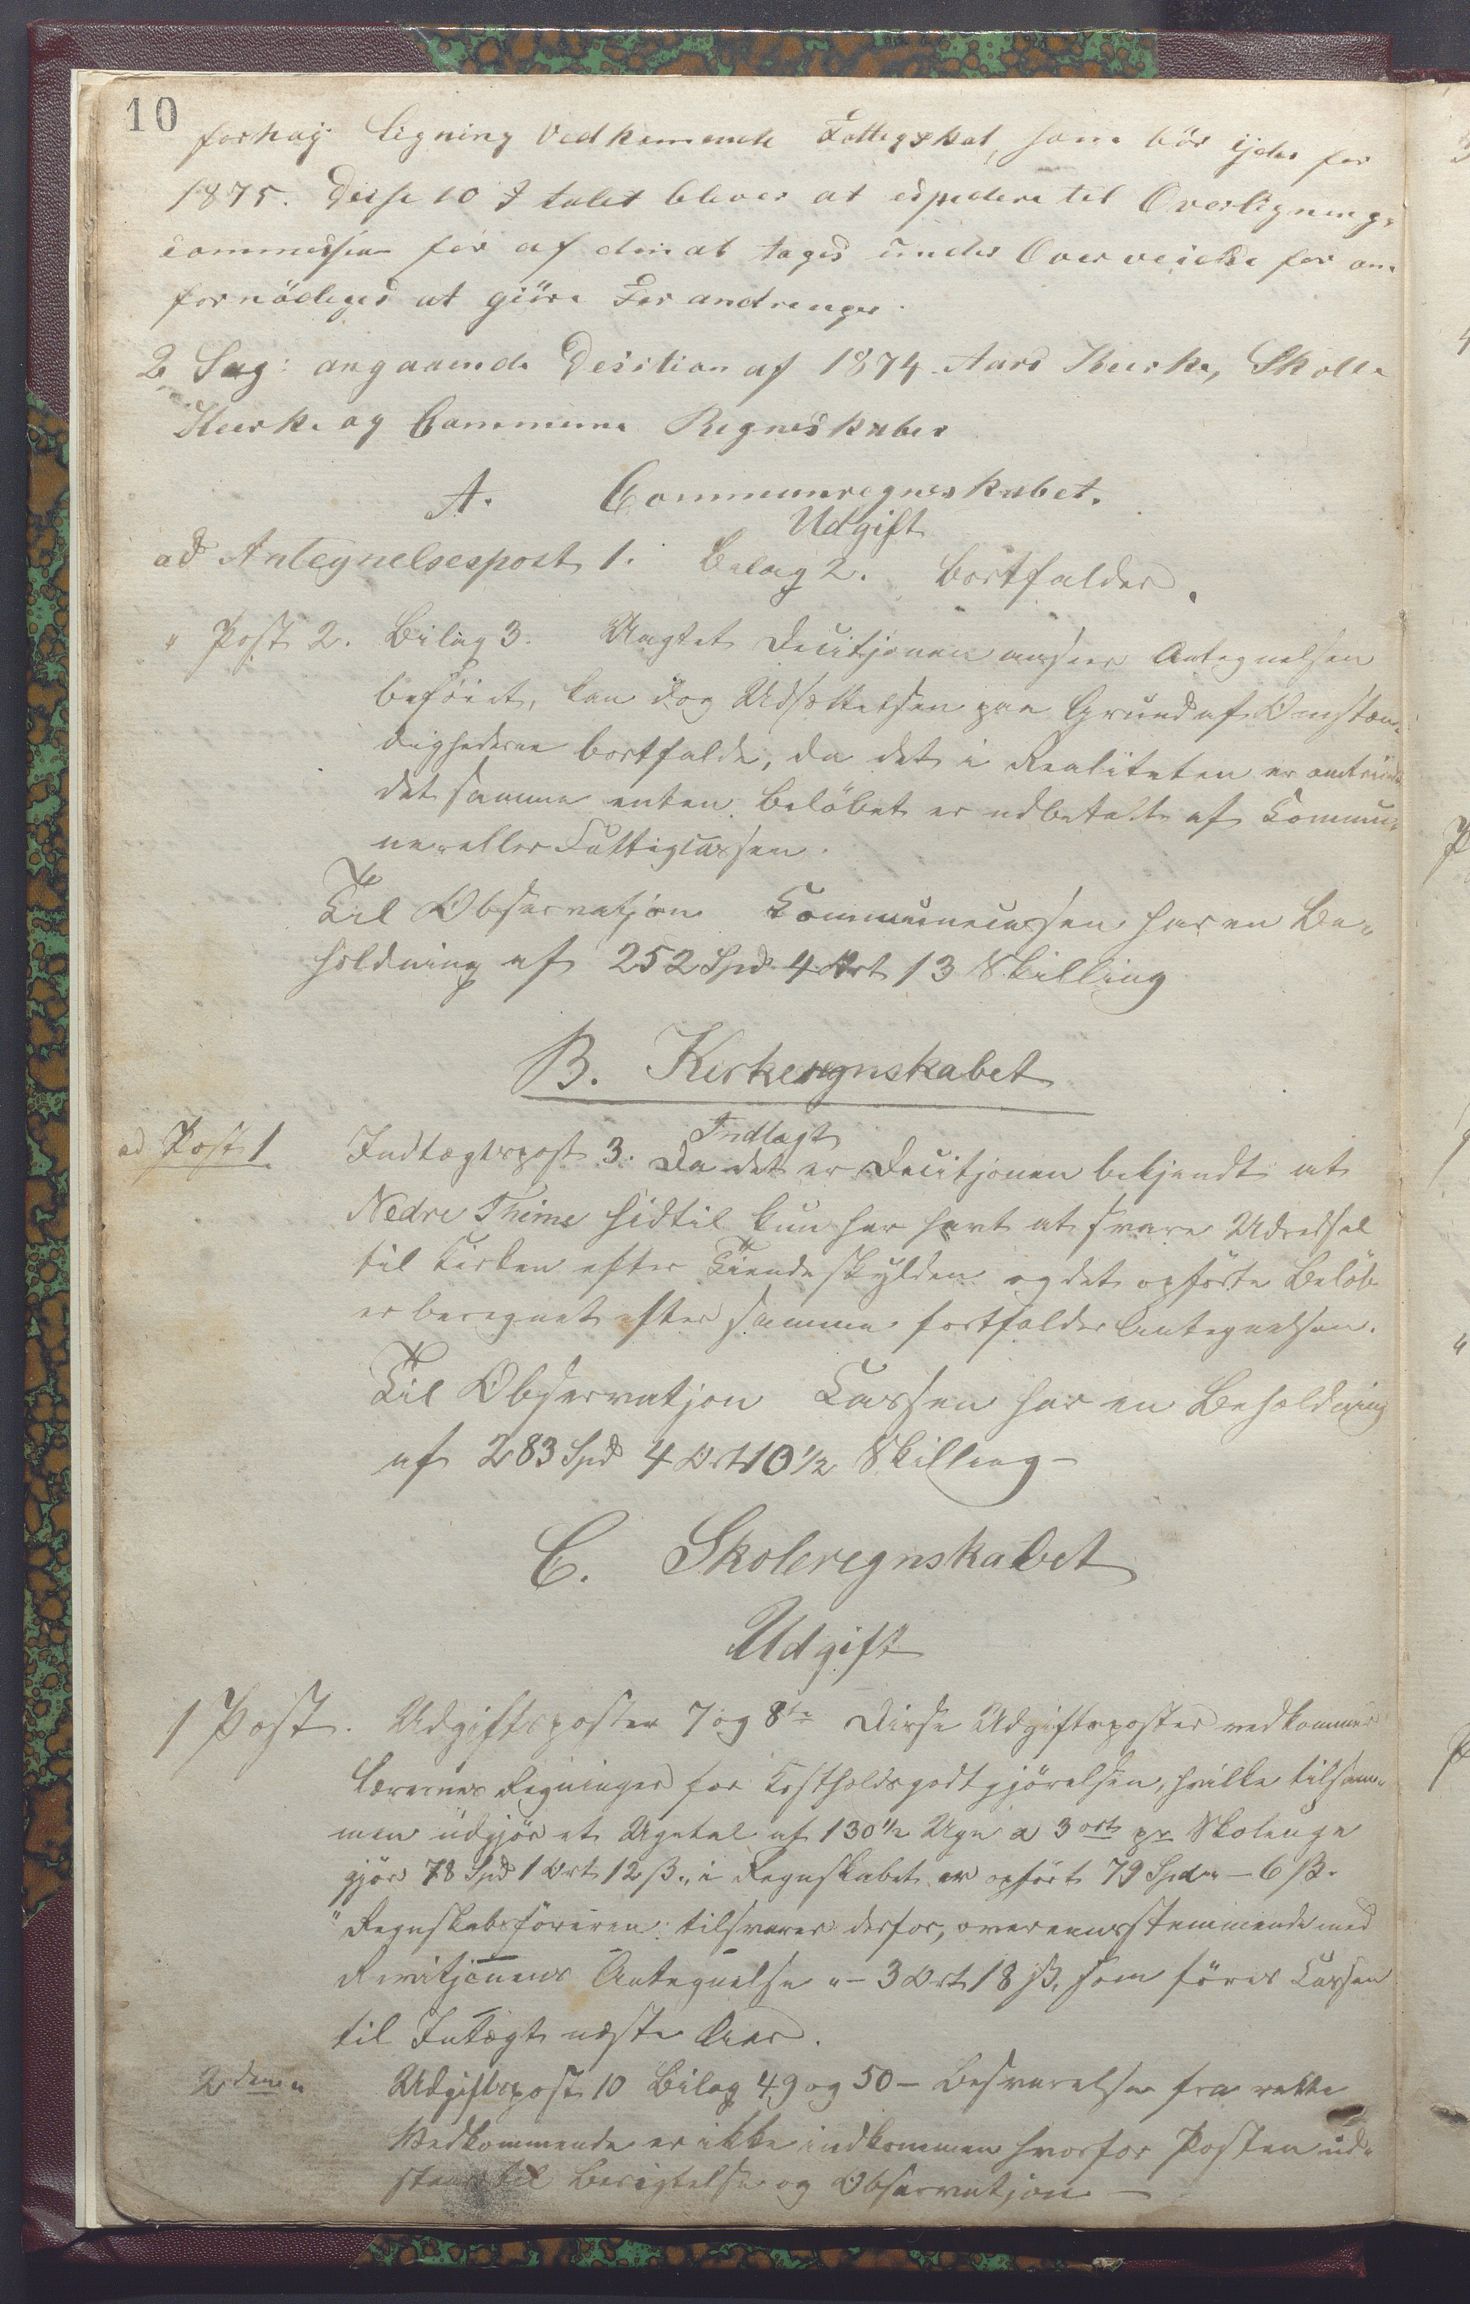 10
forhøj: Ligning Vedkommende Fattigskat, som bör gjelde for
1875. Disse 10 I talet bliver at expedere til Overlignings
commissionen for af den at tages under Overveielse for om
fornödiges at gjöre Forandringer.
2 Sag: angaaende Desition af 1874 Aars Kirke, Skolle
Kirke og Commune Regneskaber
A. Communeregneskabet.
Udgift
ad Antegnelsespost 1. Bilag 2. bortfalder.
" Post 2. Bilag 3. Uagtet Decitjonen anseer Antegnelsen
beföiet, kan dog Udsættelsen paa Grund af Omstæn-
dighederne bortfalde, da det i Realiteten er omtrent
det samme enten Belöbet er udbetalt af Commu-
ne- eller Fattigcassen.
Til Observatjon Communecassen har en Be-
holdning af 252 Spd. 4 Ort 13 Skilling
B. Kirkeregnskabet
Indtægt
ad Post 1. Indtægtspost 3. Da det er Decitjonen bekjendt at
Nedre Thime hidtil kun har havt at svare Udredsel
til Kirken efter Tiendeskylden og det opförte Belöb
er beregnet efter samme bortfalder Antegnelsen.
Til Observatjon Cassen har en Beholdning
af 283 Spd 4 Ort 10 1/2 Skilling -
C. Skoleregnskabet
Udgift
1 Post. Udgiftsposten 7 og 8de Disse Udgiftsposter vedkommer
Lærernes Regninger for Kostholdsgodtgjörelsen, hvilke tilsam-
men udgjör et Ugetal af 130 1/2 Uge a 3 ort pr Skoleuge
gjör 78 Spd 1 Ort 12 ß., i Regnskabet er opfört 79 Spd " - 6 ß.
" Regnskabsföreren tilsvarer derfor, overeensstemmende med
Revitjonens Antegnelse " - 3 Ort 18 ß, som föres Cassen
til Intægt næste Aar.
2den " Udgiftspost 10 Bilag 49 og 50 - Besvarelse fra rette
Vedkommende er ikke indkommen hvorfor Posten ud-
staar til Berigtelse og Observatjon -